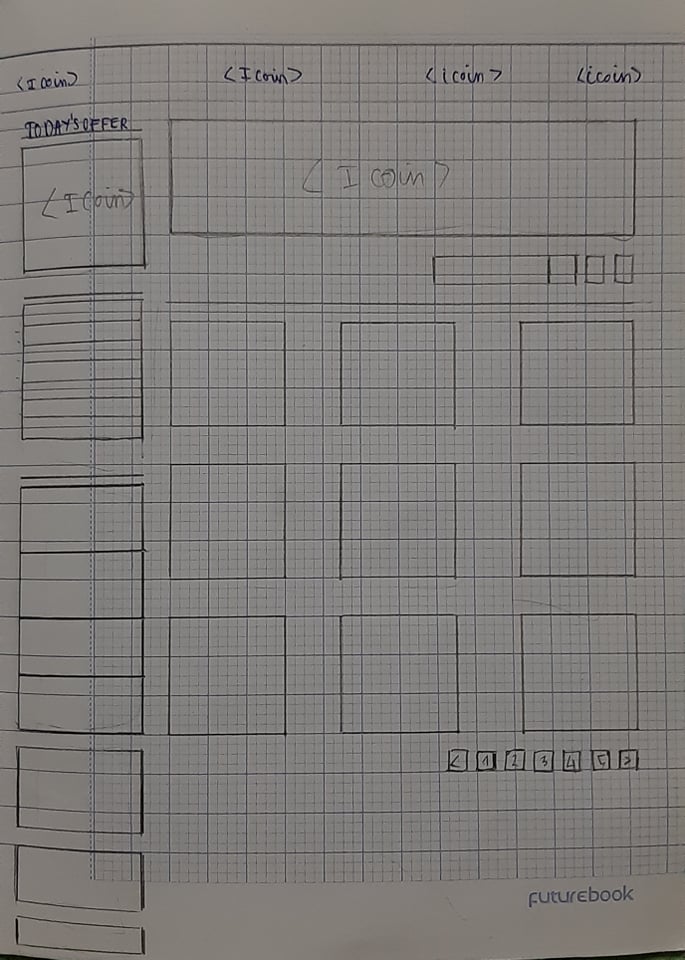 <I coin> <I coin> <icoin> <icoin>
TODAY'S OFFER
<I coin>
<I coin>
< 1 2 3 4 5 >
futurebook